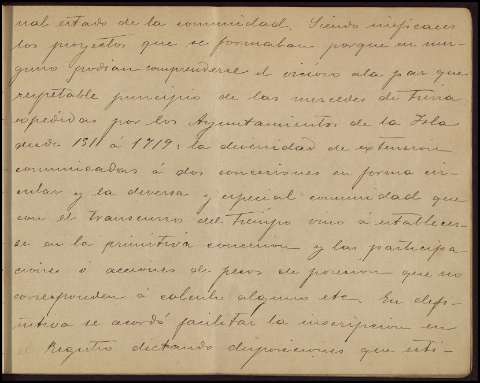 nal estado de la comunidad. Siendo ineficaces
los proyectos que se formaban porque en nin-
guno podian comprenderse el vicioso a la par que
respetable principio de las mercedes de tierra
expedidas por los Ayuntamientos de la Isla
desde 1511 á 1719; la diversidad de extension
comunicadas á dos concesiones en forma cir-
cular y la diversa y especial comunidad que
con el transcurso del tiempo vino á establecer-
se en la primitiva concesion y las participa-
ciones ó acciones de pesos de posesion que no
corresponden á calculo alguno etc. En defi-
nitiva se acordó facilitar la inscripcion en
el Registro dictando disposiciones que esti-